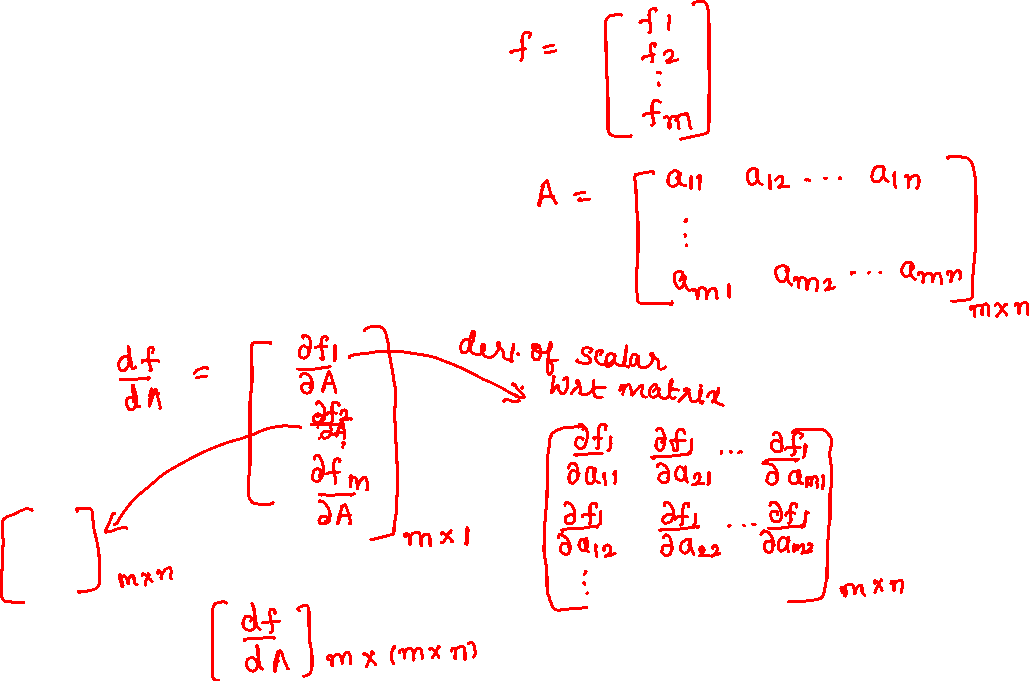 f = [ f1
f2
⋮
fm ]
A = [ a11 a12 ... a1n
⋮
am1 am2 ... amn ] m×n
df/dA = [ ∂f1/∂A
∂f2/∂A
⋮
∂fm/∂A ] m×1
deri. of scalar
wrt matrix
[ ∂f1/∂a11 ∂f1/∂a21 ... ∂f1/∂am1
∂f1/∂a12 ∂f1/∂a22 ... ∂f1/∂am2
⋮ ] m×n
[ ] m×n
[ df/dA ] m×(m×n)